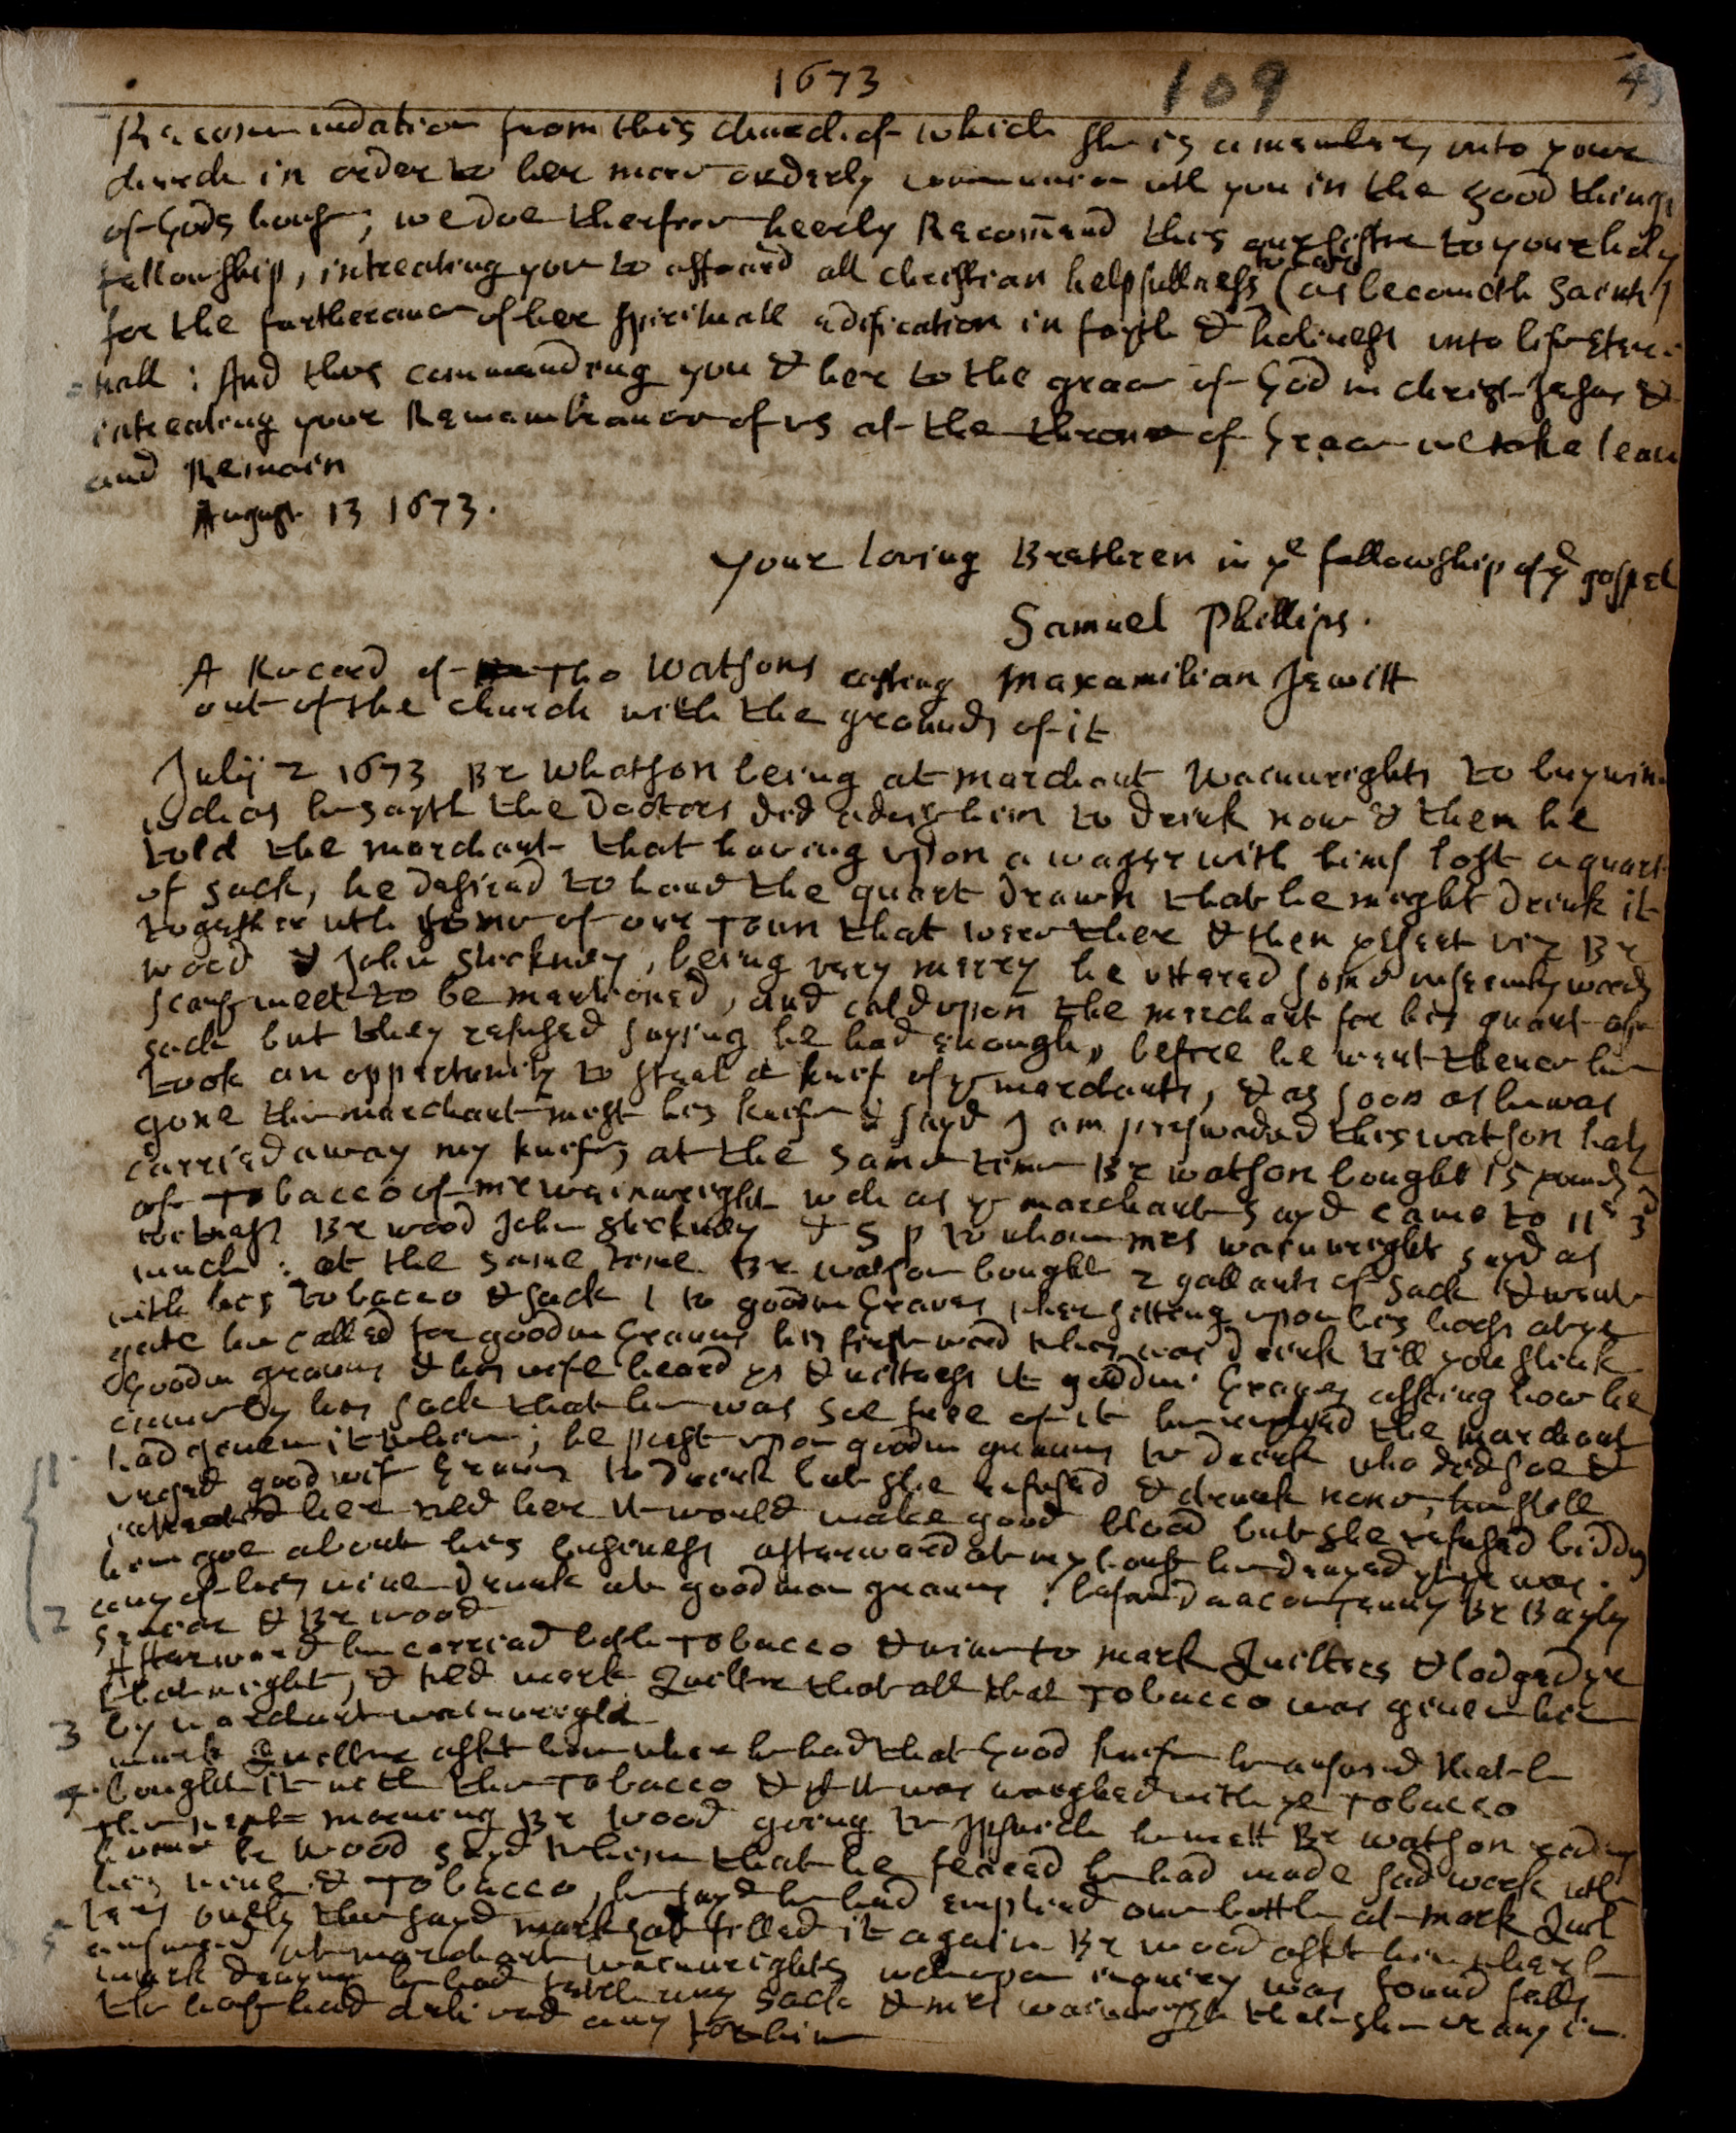 1673 109 43
Recommendation from this church of which she is a member, unto your
church in order to her more orderly communion wth you in the good things
of Gods house; we doe therfore heerby Recomend this our sister to your holy
fellowship, intreating you to affoard all christian helpfullness towards (as becometh Saints)
for the furtherance of her spirituall edification in fayth & holiness unto life eter-
nall: And thus commending you & her to the grace of God in christ Jesus &
intreating your Remembrance of us at the throne of Grace we take leave
and Remain
August 13 1673.
your loving Brethren in ye fellowship of ye gospel
Samuel Phillips.
A Record of Tho Watsons casting Maxamilian Jewitt
out of the church with the grounds of it
July 2 1673 Br Whatson being at marchant Wainwrights to buy wine
wch as he sayth the Doctors did advise him to drink now & then he
told the marchant that having upon a wager with himf lost a quart
of sack, he desired to have the quart drawn that he might drink it
together wth some of our Town that were ther & then present viz Br
Wood & John Stickney, being very merry he uttered some unseemly words
scarse meet to be mentioned, and cald upon the merchant for his quart of
sack but they refused saying he had enough, before he went thence he
took an oppertunity to steal a knife of ye marchants, & as soon as he was
gone the marchant mist his knife & sayd I am preswaded this watson hath
carried away my knife; at the same time Br watson bought 15 pounds
of Tobacco of mr wainwright wch as ye marchant sayd came to 11s 3d
witness Br wood John Stickney & S P to whom mrs wainwright sayd as
much: at the same time Br watson bought 2 gallants of sack & went
with his Tobacco & sack to goodm Graves wher sitting upon his horse at ye
gate he called for goodm Graves his first word to him was drink till you stink
Goodm graves & his wife heard ys & witness it goodm Graves assking how he
came by his sack that he was soe free of it he replyed the marchant
had given it to him; he prest upon goodm graves to drink who did soe &
1. urged good wife Graves to drink but she refused & drank none, he still
intreated her told her it would make good blood but she refused bidding
him goe about his business afterward at my house he denyed yt ye was
2 any of his wine drunk at goodman graves: before deacon Br Bayly
& Br wood
Afterward he carried both Tobacco & wine to mark Quilters & lodged ye
that night, & told mark Quilter that all that Tobacco was given him
3 by marchant wainwright
mark Quilter askt him wher he had that Good knife he answered that he
4 bought it with the Tobacco & yt it was weighed with ye Tobacco
the next morning Br Wood going to Ipswich he mett Br watson
home Br Wood sayd to him that he feared he had made sad work wth
his wine & Tobacco, he sayd he had emptied one bottle at mark Quil
5 ters only the sayd mark had filled it again Br wood askt him wher he
answered at marchant wainwrights wch upon inquiry was found false
mark denying he had any sack & mrs wainwright that she or any in
the house had delivered any to him